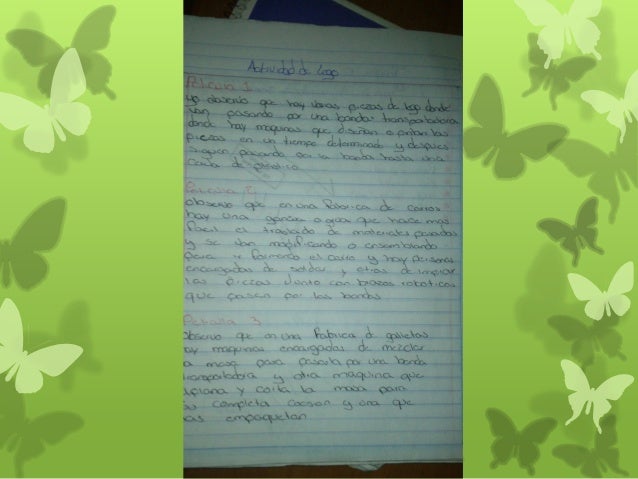 Actividad de lego
Pelicula 1
Yo observo que hay varias piezas de lego donde
van pasando por una banda transportadora
donde hay maquinas que diseñan o pintan las
piezas en un tiempo determinado y despues
siguen pasando por la banda hasta una
caja de plastico
Pelicula 2
Observo que en una Fabrica de carros
hay una o grua que hace mas
facil el traslado de materiales pesados
y se van modificando o ensamblando
para ir Formando el carro y hay personas
encargadas de soldar y otras de limpiar
las piezas Junto con brazos roboticos
que pasan por las bandas
Pelicula 3
Observo que en una Fabrica d galletas
hay maquinas encargadas de mezclar
la masa para pasarla por una banda
transportadora y otra maquina que
aplana y corta la masa para
completa coccion y una que
las empaquetan